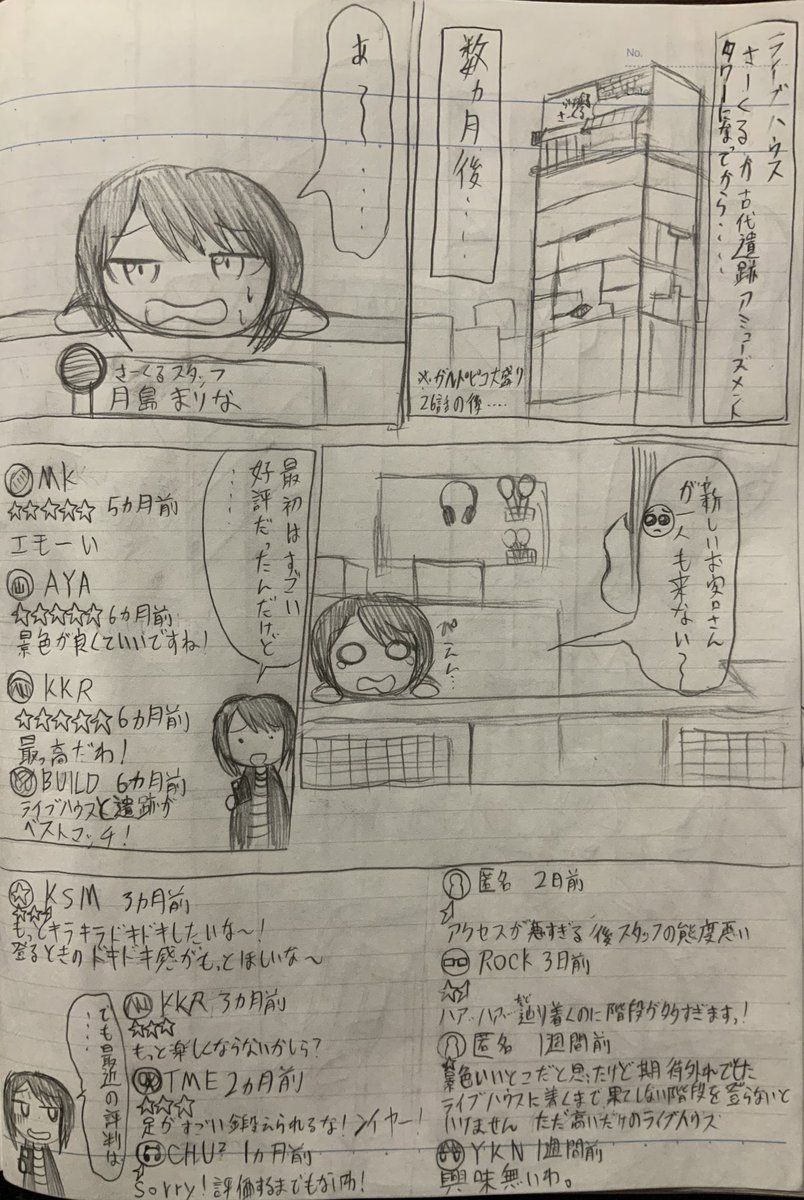 No.
ライブハウス
さーくるが古代遺跡アミューズメント
タワーになってから‥‥
数ヵ月後‥‥
※ガルパピコ大盛り
26話の後‥‥
あ〜〜‥‥
さーくるスタッフ
月島まりな
新しいお客さん
が一人も来ない〜
ぴえん‥
最初はすごい
好評だったんだけど
‥‥
MK
☆☆☆☆☆ 5ヵ月前
エモーい
AYA
☆☆☆☆☆ 6ヵ月前
景色が良くていいですね!
KKR
☆☆☆☆☆ 6ヵ月前
最っ高だわ!
BUILD 6ヵ月前
ライブハウスと遺跡が
ベストマッチ!
KSM 3ヵ月前
☆☆☆
もっとキラキラドキドキしたいな〜!
登るときのドキドキ感がもっとほしいな〜
KKR 3ヵ月前
☆☆☆
もっと楽しくならないかしら?
TME 2ヵ月前
☆☆☆
足がすごい鍛えられるな!ソイヤー!
CHU² 1ヵ月前
Sorry!評価するまでもないわ!
でも最近の評判は
‥‥
匿名 2日前
アクセスが悪すぎる 後スタッフの態度悪い
ROCK 3日前
☆☆
ハァ‥ハァ‥辿り着くのに階段が多すぎますっ!
匿名 1週間前
景色いいとこだと思ったけど期待外れでした
ライブハウスに着くまで果てしない階段を登らないと
いけません ただ高いだけのライブハウス
YKN 1週間前
興味無いわ。